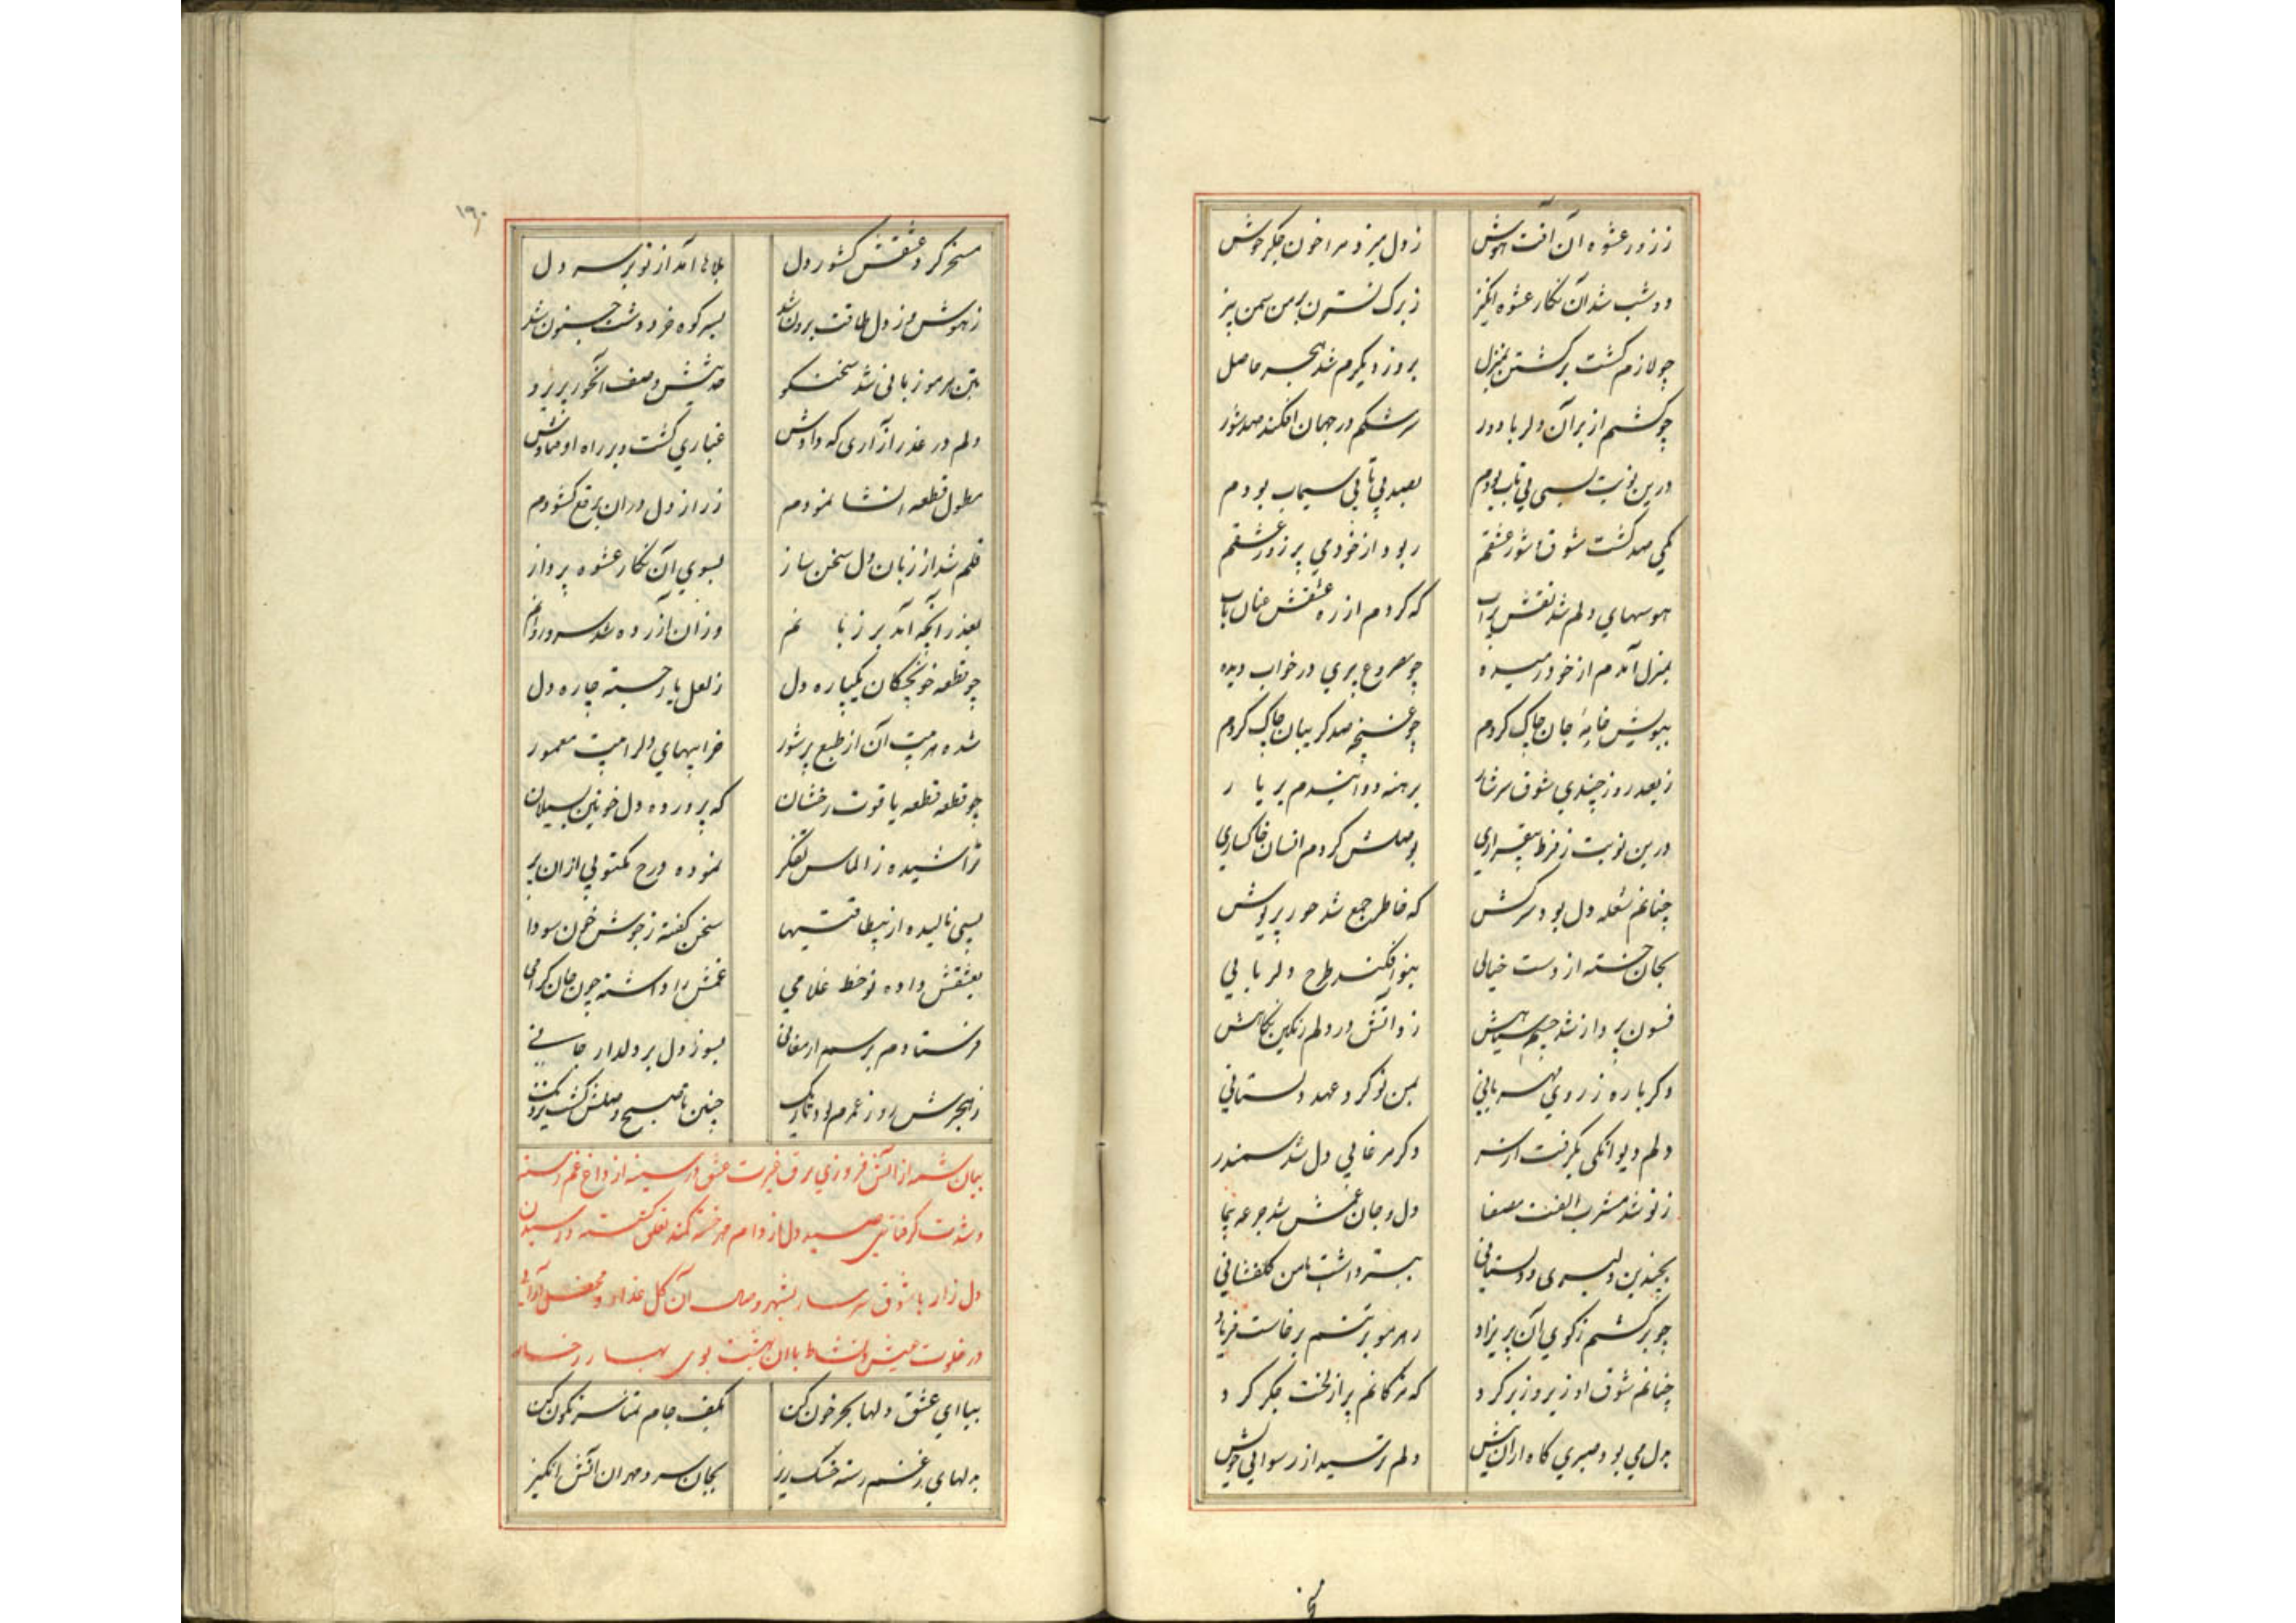 ززور عشوه آن آفت هوش زدل میزد مرا خون جگر جوش
دو شب شد آن نگار عشوه انگیز ز برک نسترن بر من سمن بیز
چو لازم کشت برکشتن بمنزل بروز دیکرم شد هجر حاصل
چو کشتم از بر آن دلربا دور سرشکم در جهان افکند صد شور
درین نوبت بسی بی تاب بودم بصد بی تابی سیماب بودم
یکی صد کشت شوق شور عشقم ربود از خود می پر زور عشقم
هوسهای دلم شد نقش بر آب که کردم از ره عشقش عنان تاب
بمنزل آمدم از خود رمیده چو مصروع پری در خواب دیده
ببویش خانهٔ جان چاک کردم چو غنچه صد کریبان چاک کردم
ز بعد روز چندی شوق سرشار برهنه پا دوانیدم بر یار
درین نوبت ز فرط بیقراری بوصلش کردم انسان خاکساری
چنانم شعله دل بود سرکش که خاطر جمع شد حور پریوش
بجان خسته از دست خیالی بنو افکند طرح دلربایی
فسون پرداز شد چشم سیاهش زد آتش در دلم رنکین نکاهش
دکر باره ز روی مهربانی بمن نو کرد عهد دلستانی
دلم دیوانکی بکرفت از سر دکر مرغابی دل شد سمندر
ز نو شد مشرب الفت مصفا دل و جان غمش شد جرعه پیما
بچندین دلبری و دلستانی ببستر داشت با من کلفشانی
چو برکشتم ز کوی آن پریزاد ز هر مو بر تنم برخاست فریاد
چنانم شوق او زیر و زبر کرد که مژکانم پر از لخت جکر کرد
بدل می بود صبری کاه ازان پیش دلم ترسید از رسوایی خویش
۱۹۰
مسخر کرد عشقش کشور دل بلاها آمد از نو بر سر دل
ز هوش و ز دل طاقت برون شد بسر کوه خرد دشت جنون شد
بتن هر مو زبانی شد سخنکو حدیثش وصف آن حور پریرو
دلم در عذر آزاری که دادش غباری کشت و بر راه اوفتادش
مطول قطعه انشا نمودم ز راز دل دران برقع کشودم
قلم شد از زبان دل سخن ساز بسوی آن نکار عشوه پرداز
بعذر آنچه آمد بر زبانم وزان آزرده شد سرو روانم
چو قطعه خونچکان یکپاره دل ز لعل یار جسته چاره دل
شده هر بیت آن از طبع پرشور خرابیهای دلرا بیت معمور
چو قطعه قطعه یاقوت رخشان که پرورده دل خونین بسیلان
تراشیده ز الماس تفکر نموده درج مکتوبی ازان پر
بسی نالیده از بیطاقتیها سخن کفته ز جوش خون سودا
بعشقش داده نو خط غلامی غمش را داشته چون جان کرامی
فرستادم برسم ارمغانی بسوز دل بر دلدار جانی
ز هجرش روز عمرم بود تاریک چنین تا صبح وصلش کشت نزدیک
بیان شمه از آتش فروزی برق غیرت عشق در سینه از داغ غم رسته
و شدت کرفتاری صید دل از دام هر خسته کمند تعلق کسسته و رسیدن
دل زار با شوق سرسار بشهر وصال آن کل عذار و محفل آرایی
در خلوت عیش و نشاط با ان بهشت بوی بهار رخسار
بیا ای عشق دلها بحر خون کن بکف جام تمنا سرنکون کن
بدلهای ز غم رسته خسک ریز بجان سرد مهران آتش انکیز